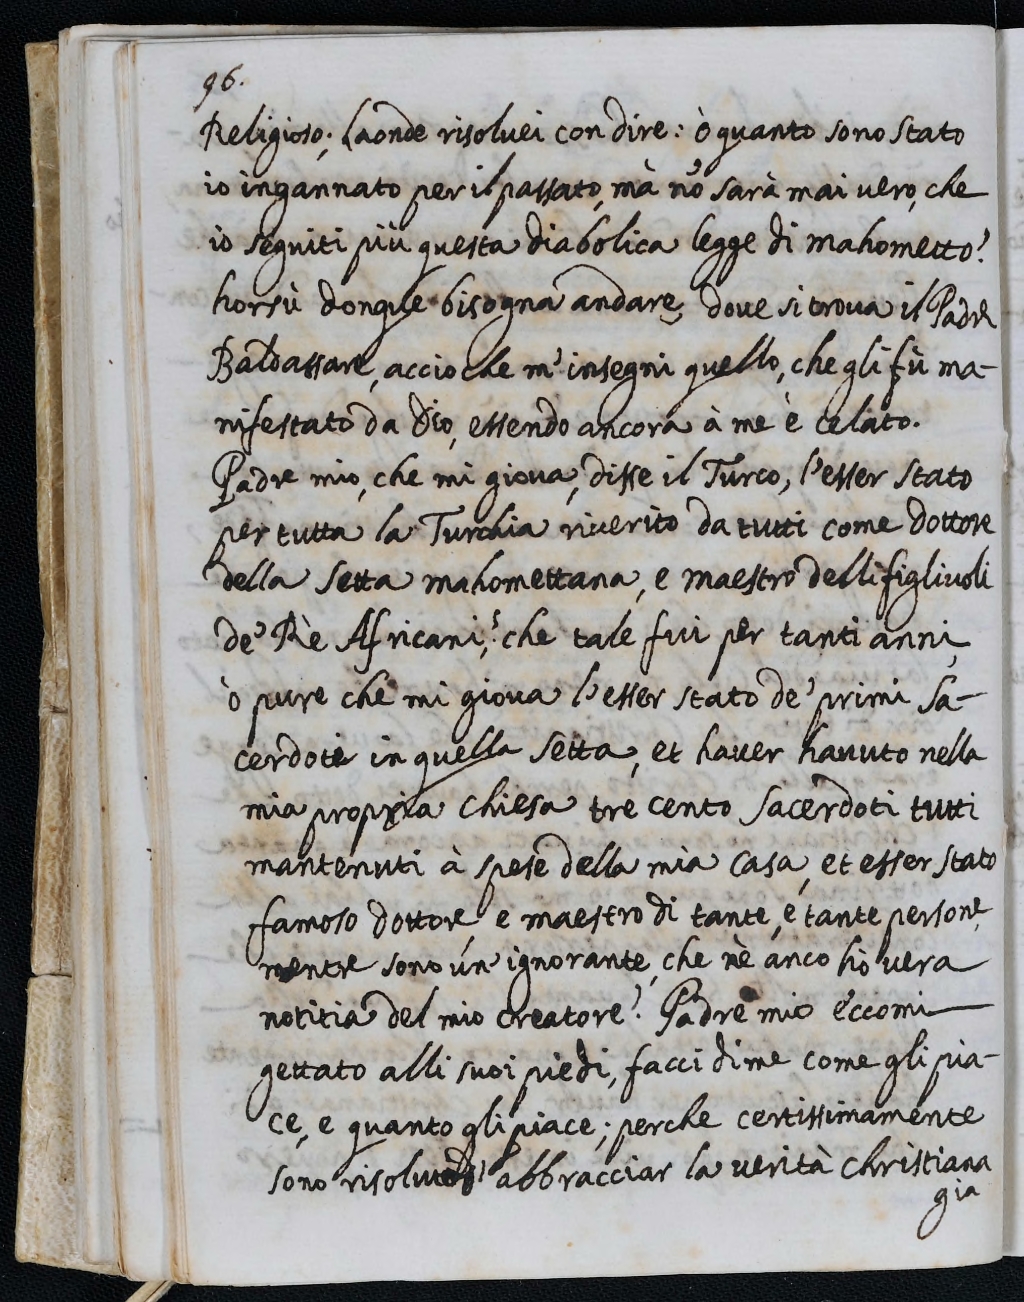 96.
Religioso; Laonde risoluei con dire: ò quanto sono stato
io ingannato per il passato, mà nõ sarà mai vero, che
io seguiti più questa diabolica legge di mahometto?
horsù donque bisogna andare, doue si troua il Padre
Baldassare, accioche m'insegni quello, che gli fù ma-
nifestato da Dio, essendo ancora à me è celato.
Padre mio, che mi gioua, disse il Turco, l'esser stato
per tutta la Turchia riuerito da tutti come dottore
della setta mahomettana, e maestro delli figliuoli
de' Rè Africani,? che tale fui per tanti anni,
ò pure che mi gioua l'esser stato de' primi Sa-
cerdoti in quella setta, et hauer hauuto nella
mia propria chiesa tre cento Sacerdoti tutti
mantenuti à spese della mia casa, et esser stato
famoso dottore, e maestro di tante, e tante persone,
mentre sono ún ignorante, che nè anco hò vera
notitia del mio creatore? Padre mio éccomi
gettato alli suoi piedi, facci di me come gli pia-
ce, e quanto gli piace; perche certissimamente
sono risoluto d'abbracciar la uerità christiana
gia